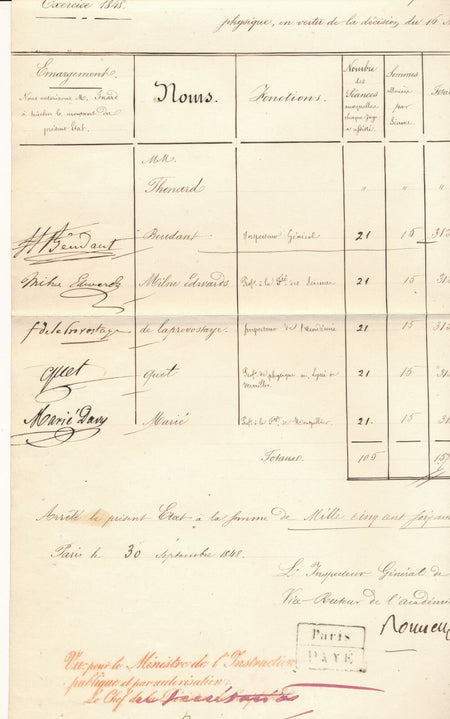 Exercice 1848.
physique, en vertu de la décision du 16
Emargement.
Nous autorisons M.
à toucher le montant du
présent Etat.
Noms.
Fonctions.
Nombre
des
Séances
auxquelles
chaque Juge
a assisté
Sommes
allouées
par
Séance.
Totau
MM.
Thenard " "
Beudant Beudant Inspecteur Général 21 15 315
Milne Edwards Milne Edwards Prof. à la des Sciences 21 15 31
f de la Provostaye de Laprovostaye. Inspecteur de l'Académie 21 15 31
Quet Quet Prof. de physique au Lycée de
Versailles 21 15 31
Marié Davy Marié Prof. à la de Montpellier 21 15 31
Totaux 105 157
Arrêté le présent Etat à la somme de Mille cinq cent soixan
Paris le 30 Septembre 1848.
L'Inspecteur Général de
Vice-Recteur de l'académi
Paris
PAYÉ
Vu pour le Ministre de l'Instruction
publique et par autorisation:
Le Chef